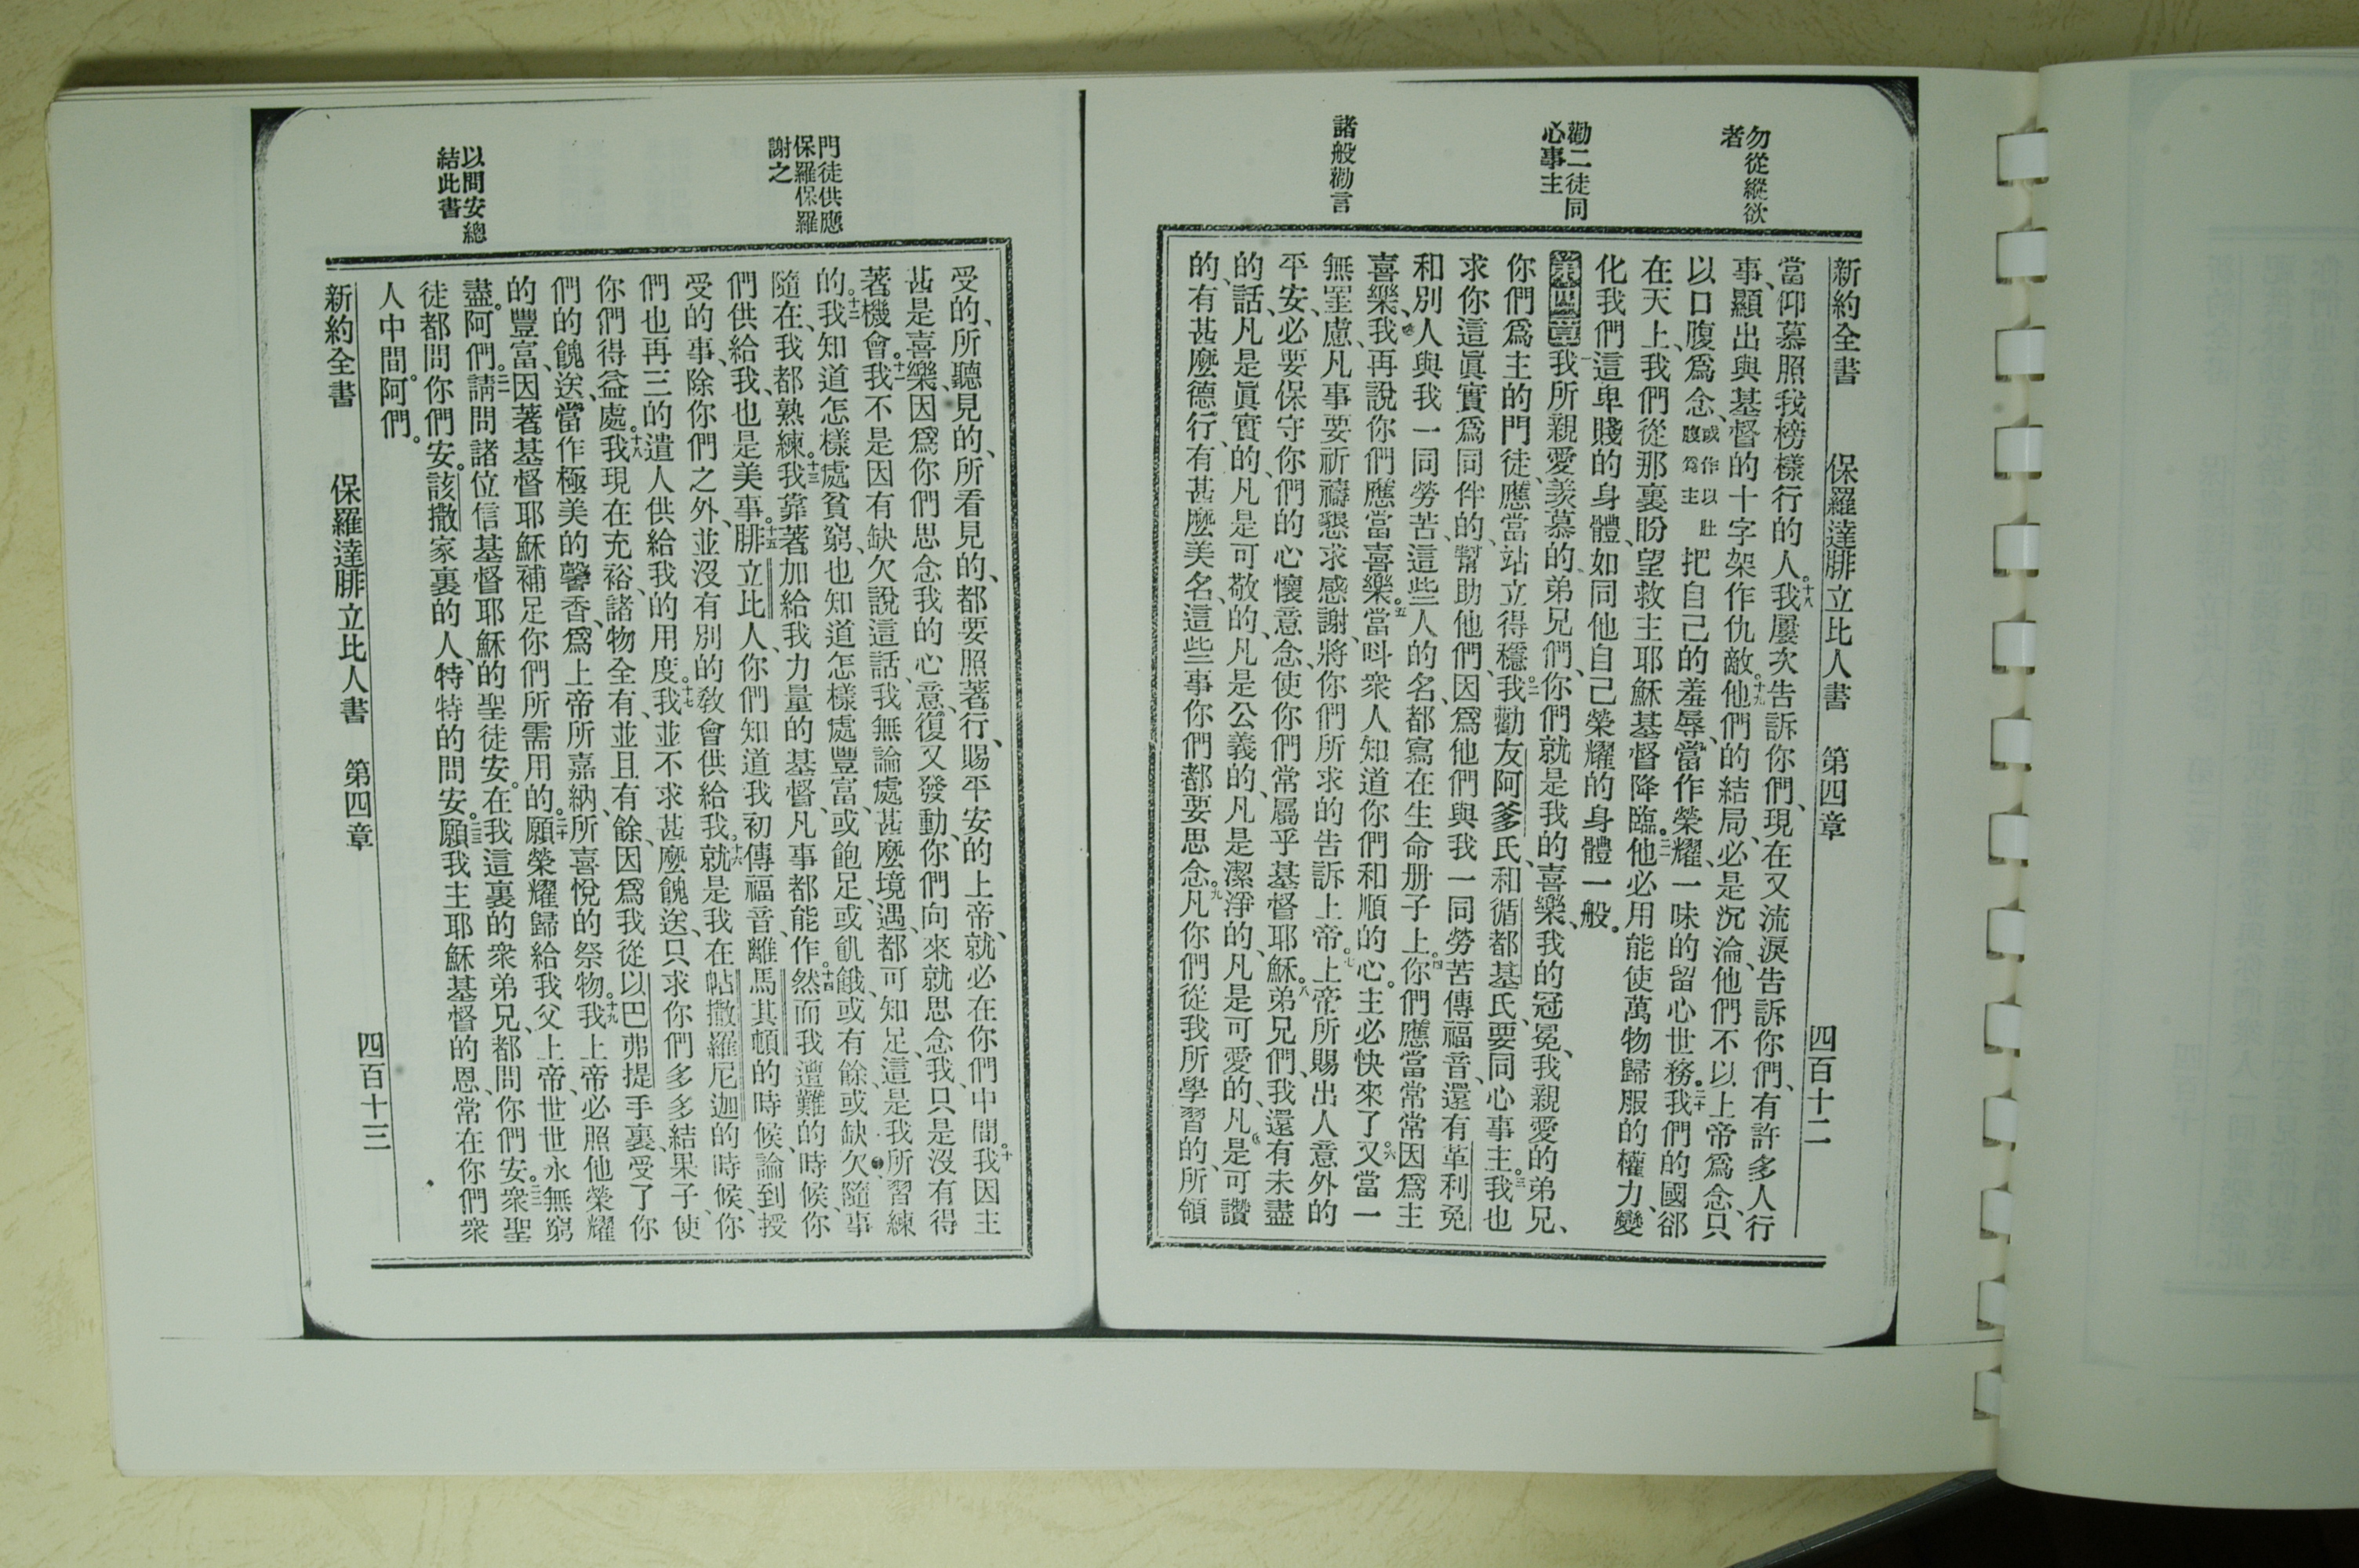 勿從縱欲
者
勸二徒同
心事主
諸般勸言
新約全書 保羅達腓立比人書 第四章 四百十二
當仰慕照我榜樣行的人。十八我屢次告訴你們、現在又流淚告訴你們、有許多人行
事、顯出與基督的十字架作仇敵。十九他們的結局、必是沉淪、他們不以上帝爲念、只
以口腹爲念、或作以肚腹爲主把自己的羞辱、當作榮耀、一味的留心世務。二十我們的國郤
在天上、我們從那裏盼望救主耶穌基督降臨。二一他必用能使萬物歸服的權力、變
化我們這卑賤的身體、如同他自己榮耀的身體一般。
第四章一我所親愛羨慕的弟兄們、你們就是我的喜樂、我的冠冕、我親愛的弟兄、
你們爲主的門徒、應當站立得穩。二我勸友阿爹氏、和循都基氏、要同心事主。三我也
求你這眞實爲同伴的、幫助他們、因爲他們與我一同勞苦傳福音、還有革利免
和別人與我一同勞苦、這些人的名、都寫在生命册子上。四你們應當常常因爲主
喜樂、我再說你們應當喜樂。五當呌衆人知道你們和順的心。主必快來了。六又當一
無罣慮、凡事要祈禱懇求感謝、將你們所求的告訴上帝。七上帝所賜出人意外的
平安、必要保守你們的心懷意念、使你們常屬乎基督耶穌。八弟兄們、我還有未盡
的話、凡是眞實的、凡是可敬的、凡是公義的、凡是潔淨的、凡是可愛的、凡是可讚
的、有甚麼德行、有甚麼美名、這些事你們都要思念。九凡你們從我所學習的、所領
門徒供應
保羅保羅
謝之
以問安總
結此書
受的、所聽見的、所看見的、都要照著行、賜平安的上帝、就必在你們中間。十我因主
甚是喜樂、因爲你們思念我的心意、復又發動、你們向來就思念我、只是沒有得
著機會。十一我不是因有缺欠說這話、我無論處甚麼境遇、都可知足、這是我所習練
的。十二我知道怎樣處貧窮、也知道怎樣處豐富、或飽足、或飢餓、或有餘、或缺欠、隨事
隨在、我都熟練。十三我靠著加給我力量的基督、凡事都能作。十四然而我遭難的時候、你
們供給我、也是美事。十五腓立比人、你們知道我初傳福音、離馬其頓的時候、論到授
受的事、除你們之外、並沒有別的敎會供給我。十六就是我在帖撒羅尼迦的時候、你
們也再三的遣人供給我的用度。十七我並不求甚麼餽送、只求你們多多結果子、使
你們得益處。十八我現在充裕、諸物全有、並且有餘、因爲我從以巴弗提手裏、受了你
們的餽送、當作極美的馨香、爲上帝所嘉納、所喜悅的祭物。十九我上帝必照他榮耀
的豐富、因著基督耶穌補足你們所需用的。二十願榮耀歸給我父上帝、世世永無窮
盡。阿們。二一請問諸位信基督耶穌的聖徒安。在我這裏的衆弟兄、都問你們安。二二衆聖
徒都問你們安。該撒家裏的人、特特的問安。二三願我主耶穌基督的恩、常在你們衆
人中間。阿們。
新約全書 保羅達腓立比人書 第四章 四百十三